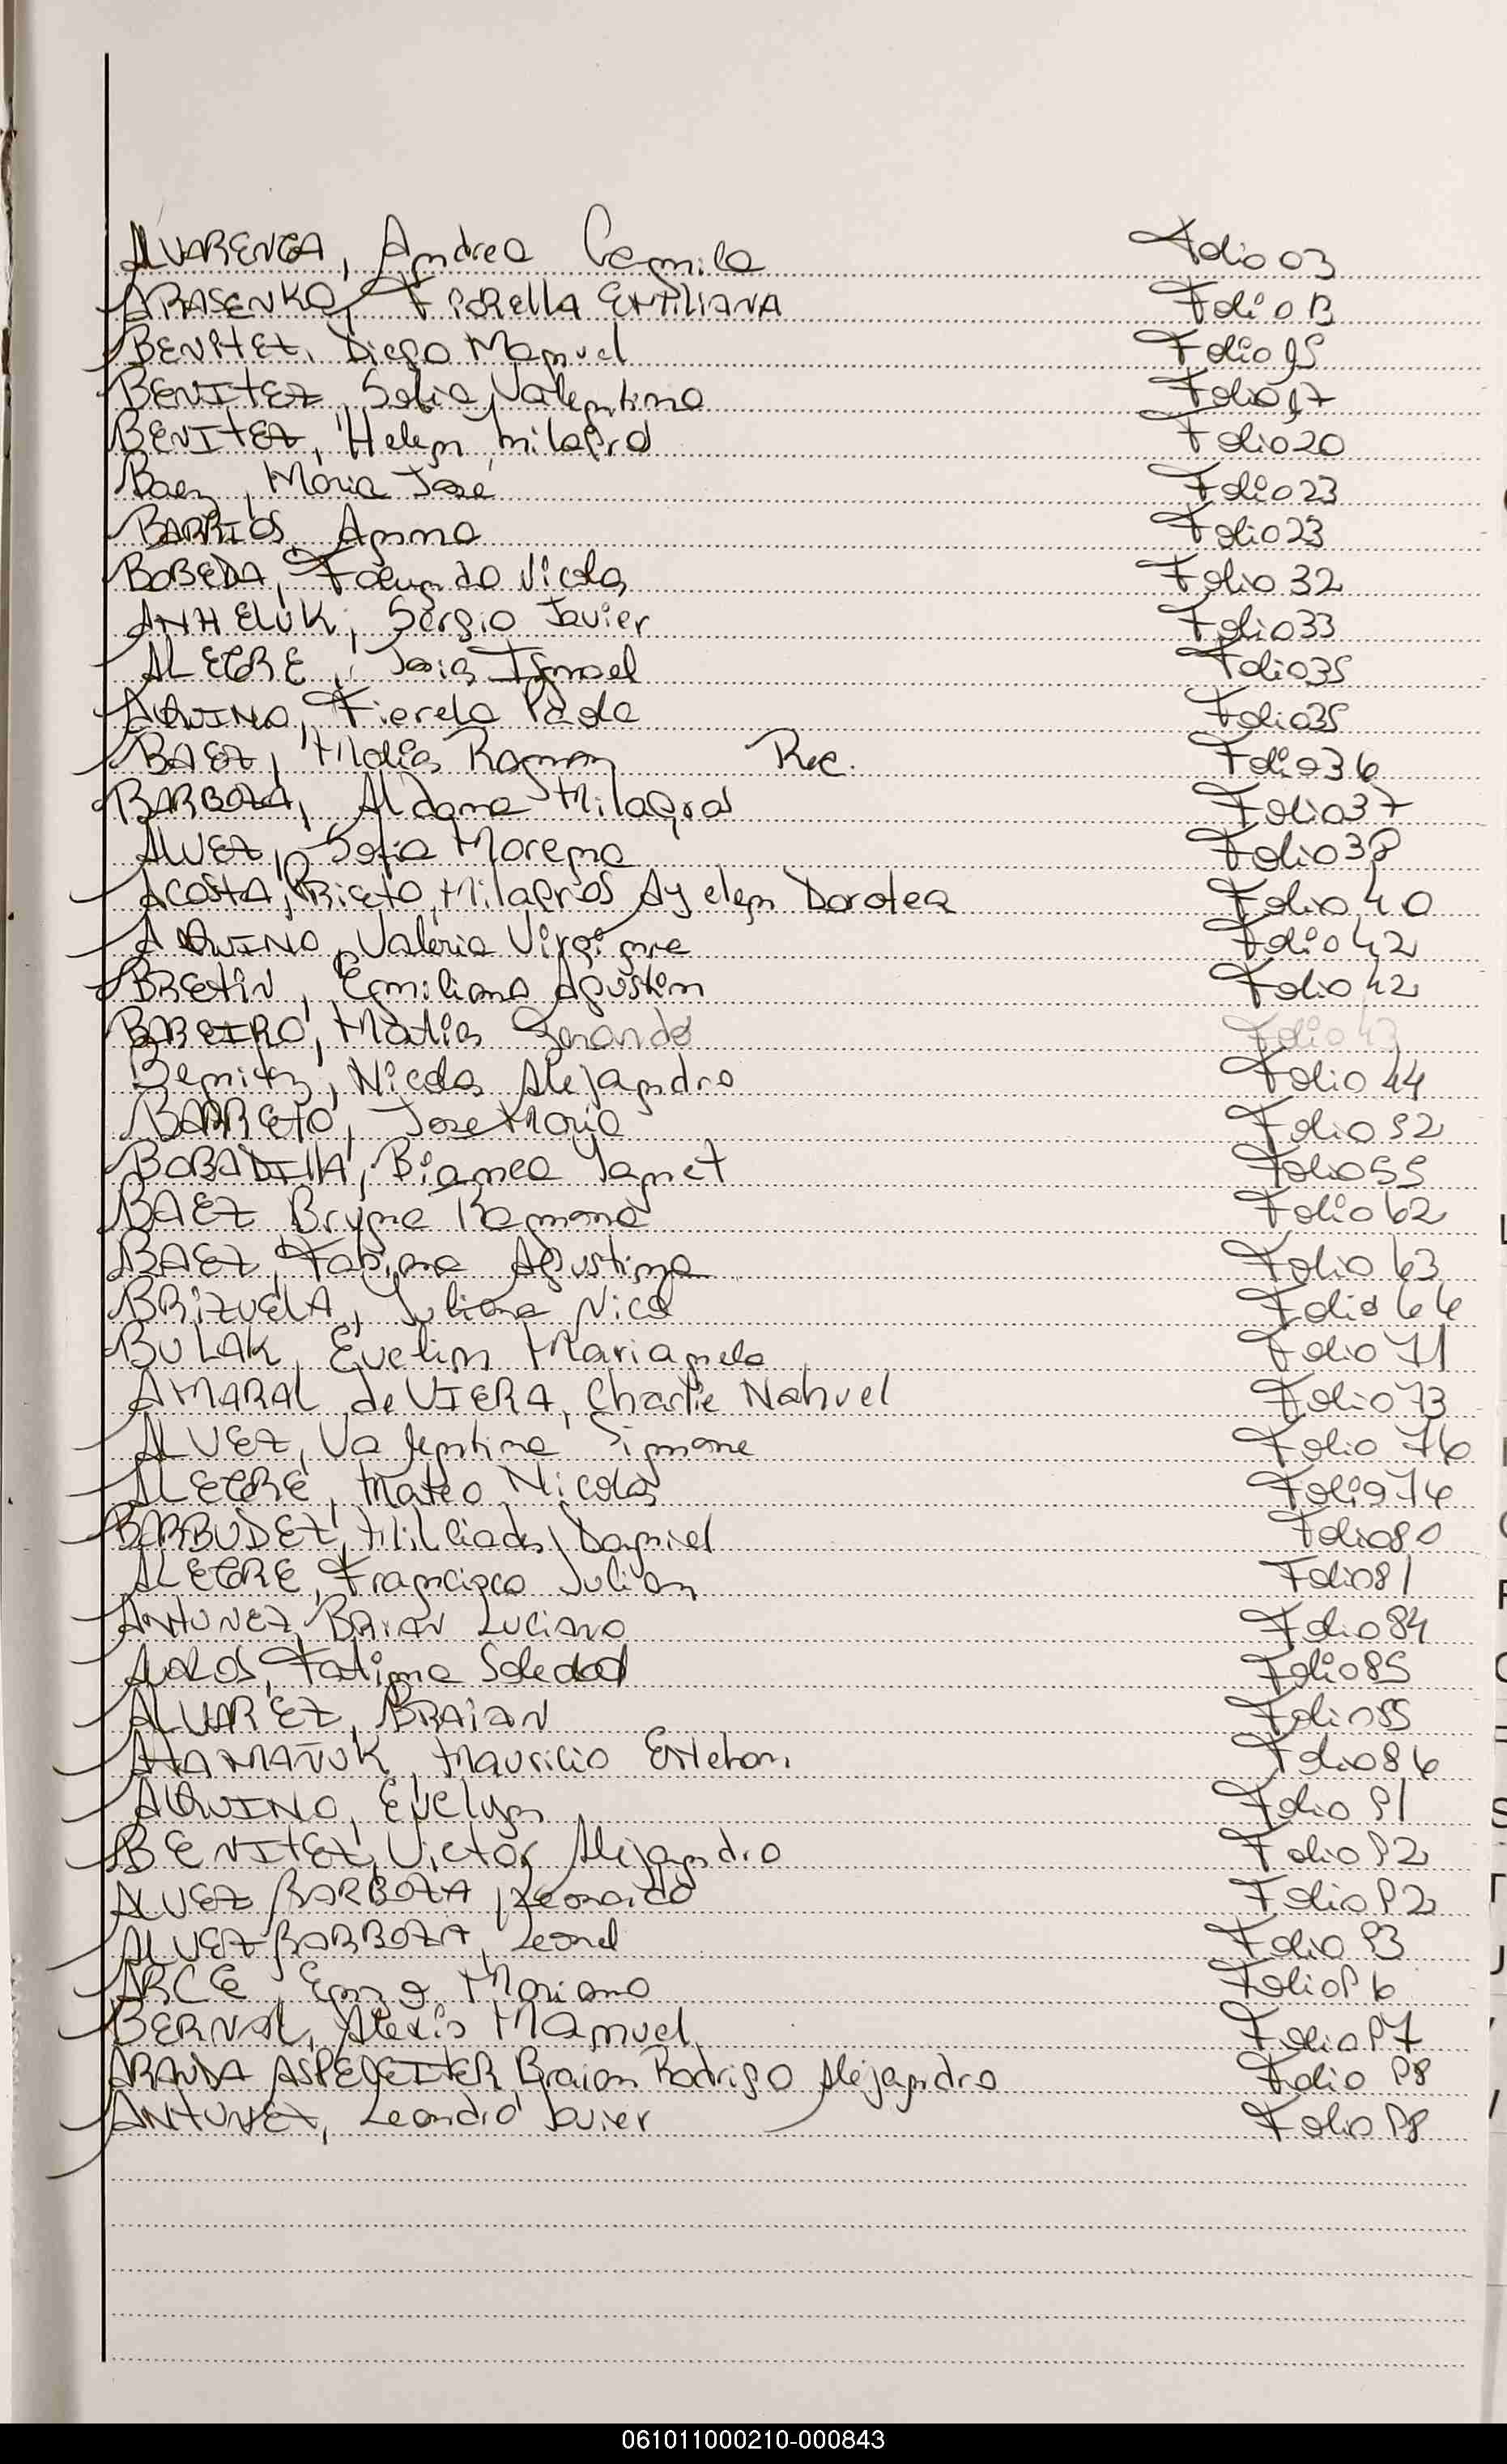 ALVARENGA, Andrea Camila Folio 03
ARASENKO, FIORELLA EMILIANA Folio 13
BENITEZ, Diego Manuel Folio 15
BENITEZ, Sofia Valentina Folio 17
BENITEZ, Helen Milagros Folio 20
Baez, Maria Jose Folio 23
BARRIOS, Anna Folio 23
BOBEDA, Facundo Nicolas Folio 32
ANHELUK, Sergio Javier Folio 33
ALEGRE, Ismael Folio 35
AQUINO, Fiorela Paola Folio 35
BAEZ, Matias Ramon Rec. Folio 36
BARBOZA, Aldana Milagros Folio 37
ALVEZ, Sofia Morena Folio 38
ACOSTA, PRIETO, Milagros Ayelen Dorotea Folio 40
AQUINO, Valeria Virginia Folio 42
BRETIN, Emiliano Agustin Folio 42
BAREIRO, Matias Gerardo Folio 43
Benitez, Nicolas Alejandro Folio 44
BARRETO, Jose Maria Folio 52
BOBADILLA, Bianca Janet Folio 55
BAEZ Bryna Ramona Folio 62
BAEZ, Fabiana Agustina Folio 63
BRIZUELA, Juliana Nicol Folio 66
BULAK, Evelin Marianela Folio 71
AMARAL de VIERA, Charlie Nahuel Folio 73
ALVEZ, Valentina Simone Folio 76
ALEGRE, Mateo Nicolas Folio 76
BARBUDEZ, Milciades Daniel Folio 80
ALEGRE, Francisco Julian Folio 81
ANTUNEZ, BRIAN LUCIANO Folio 84
AVALOS, Fatima Soledad Folio 85
ALVAREZ, BRAIAN Folio 85
ATAMAÑUK, Mauricio Esteban Folio 86
AQUINO, Evelyn Folio 91
BENITEZ, Victor Alejandro Folio 92
ALVEZ BARBOZA, Leonardo Folio 92
ALVEZ BARBOZA, Leonel Folio 93
ARCE, Mariano Folio 96
BERNAL, Alexis Manuel Folio 97
ARANDA Braian Rodrigo Alejandro Folio 98
ANTUNEZ, Leandro Javier Folio 98
061011000210-000843